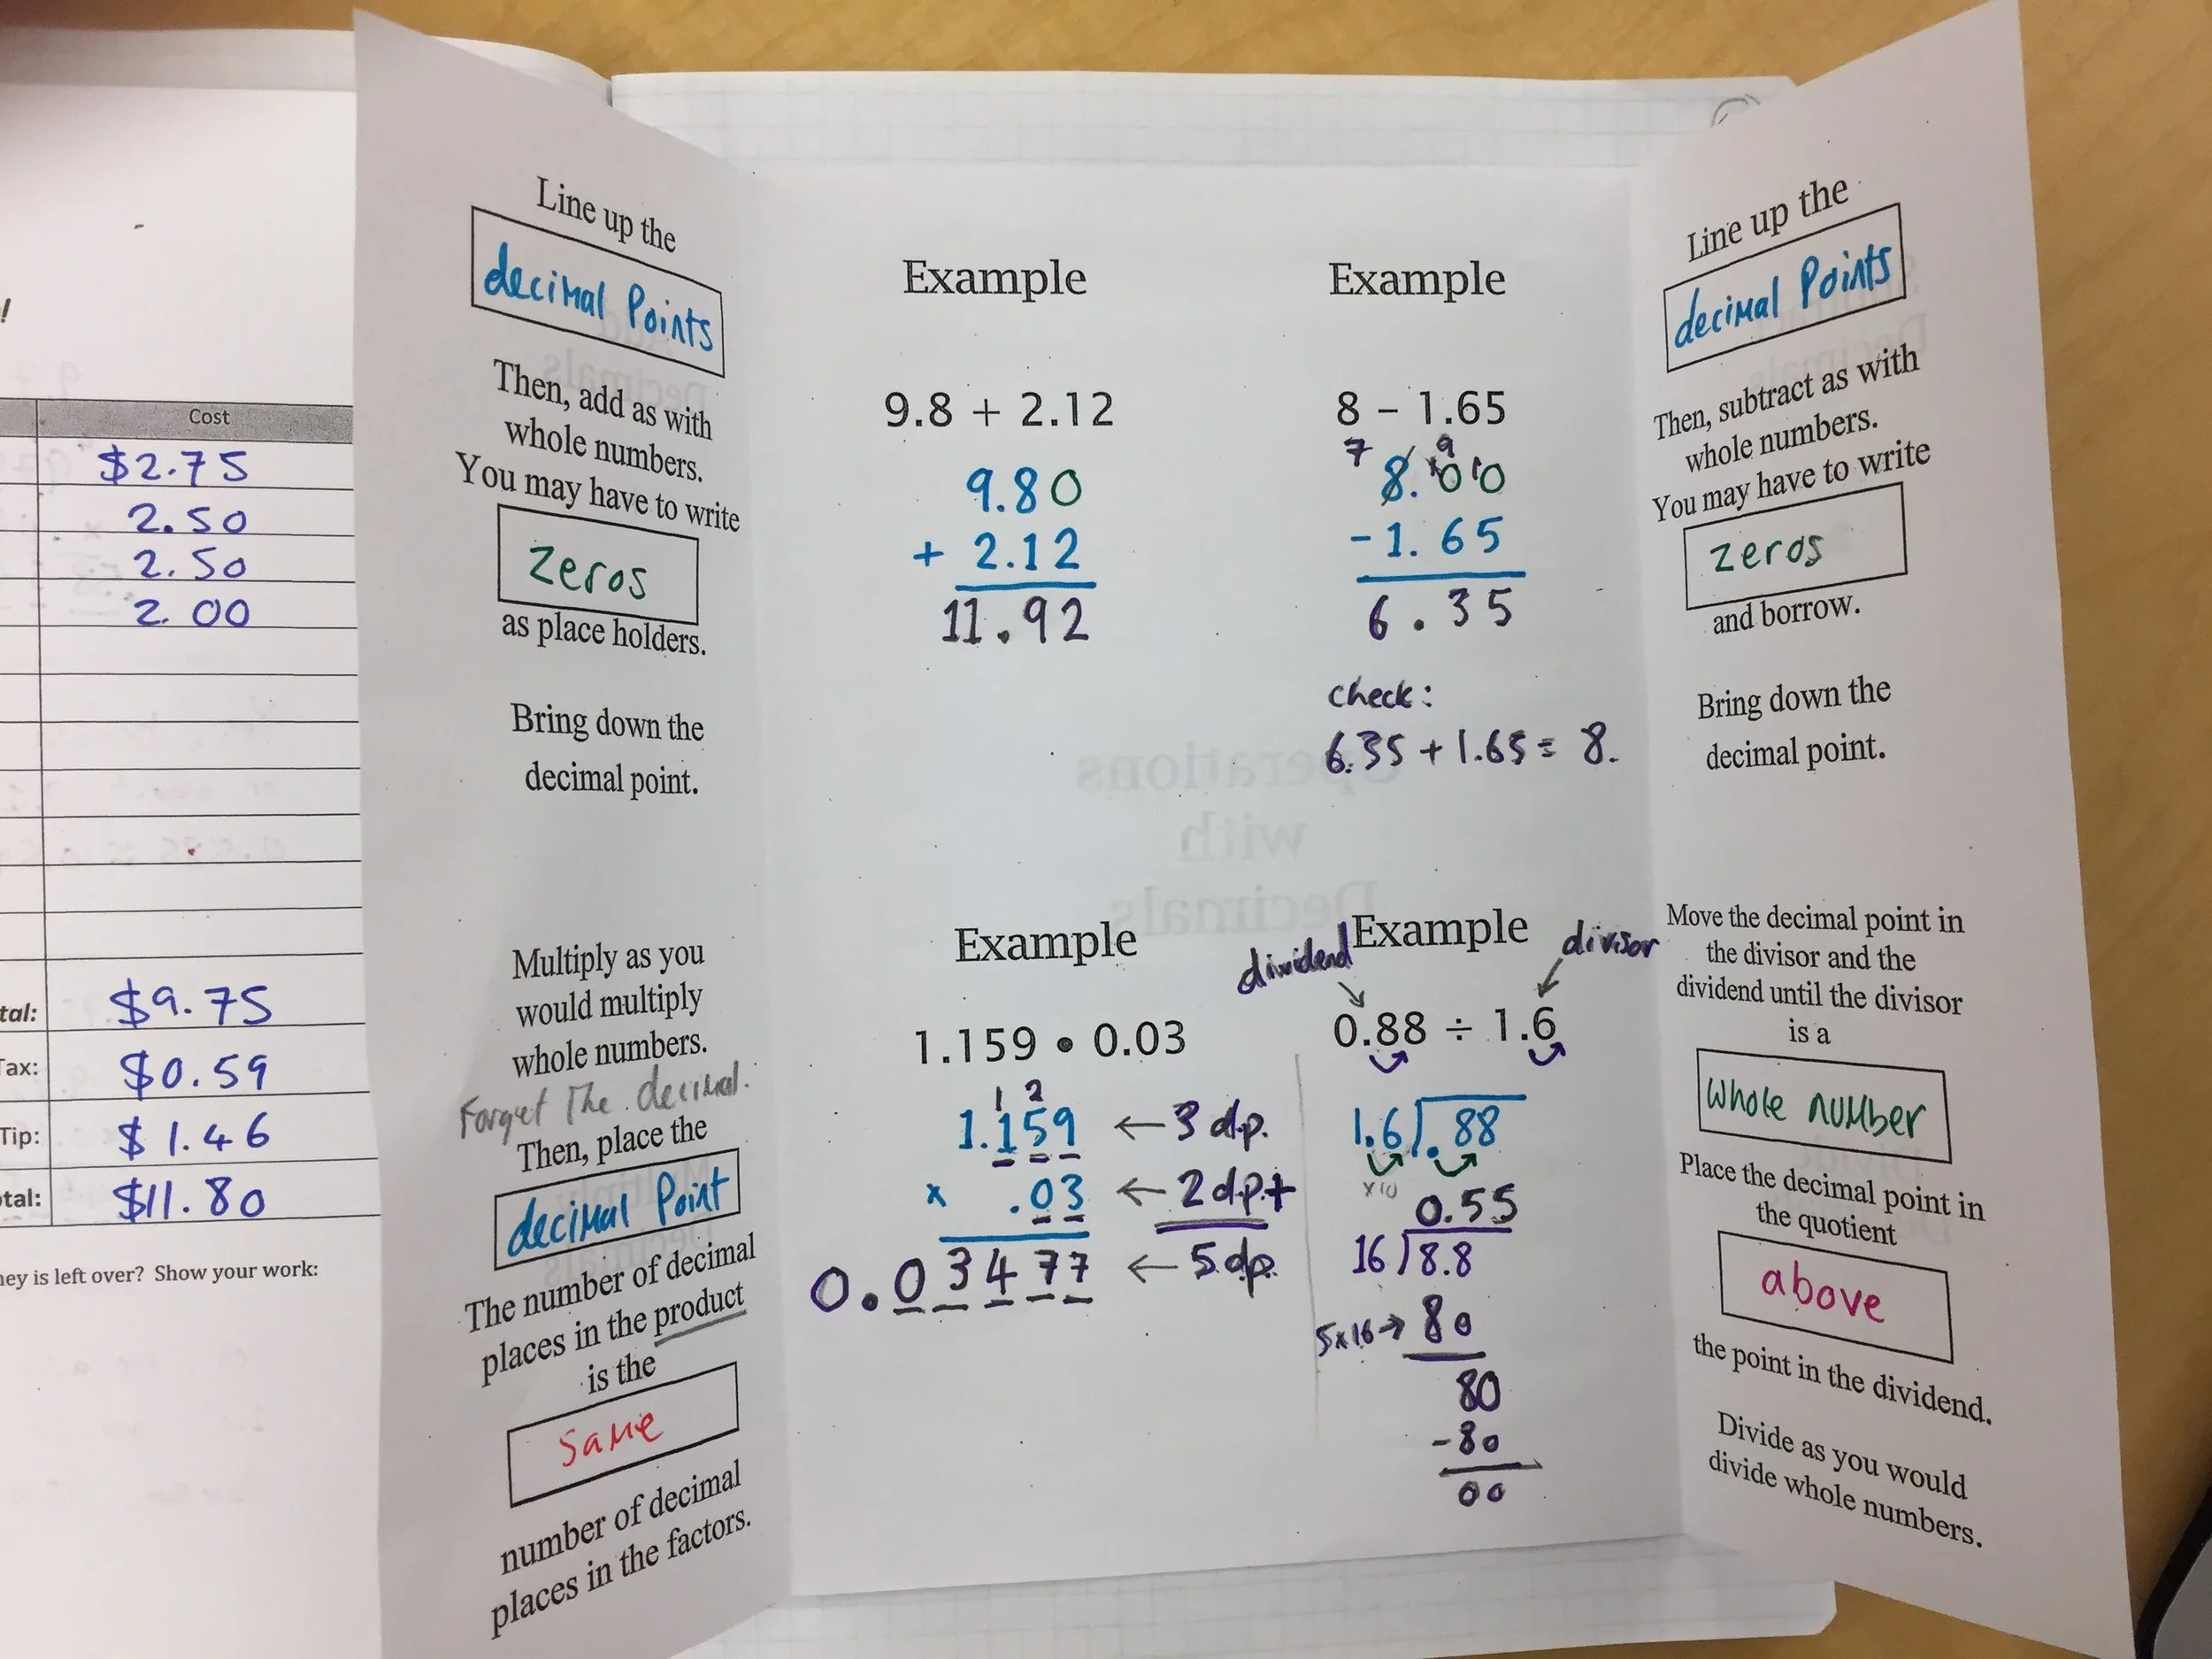 !
Cost
$2.75
2.50
2.50
2.00
tal: $9.75
Tax: $0.59
Tip: $1.46
otal: $11.80
ney is left over? Show your work:
Line up the
decimal Points
Then, add as with
whole numbers.
You may have to write
zeros
as place holders.
Bring down the
decimal point.
Multiply as you
would multiply
whole numbers.
Forget The decimal.
Then, place the
decimal Point
The number of decimal
places in the product
is the
same
number of decimal
places in the factors.
Example
9.8 + 2.12
9.80
+ 2.12
11.92
Example
8 – 1.65
7 9
8.10 10
-1.65
6.35
check:
6.35 + 1.65 = 8.
Example
1.159 • 0.03
1 2
1.159 ← 3 d.p.
x .03 ← 2 d.p.+
0.03477 ← 5 d.p.
Example
dividend
divisor
0.88 ÷ 1.6
1.6).88
x10
0.55
16)8.8
5x16→ 80
80
-80
00
Line up the
decimal Points
Then, subtract as with
whole numbers.
You may have to write
zeros
and borrow.
Bring down the
decimal point.
Move the decimal point in
the divisor and the
dividend until the divisor
is a
whole number
Place the decimal point in
the quotient
above
the point in the dividend.
Divide as you would
divide whole numbers.